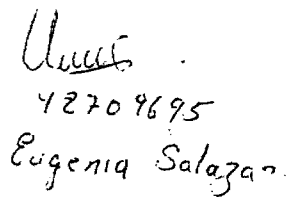 42709695
Eugenia Salazar